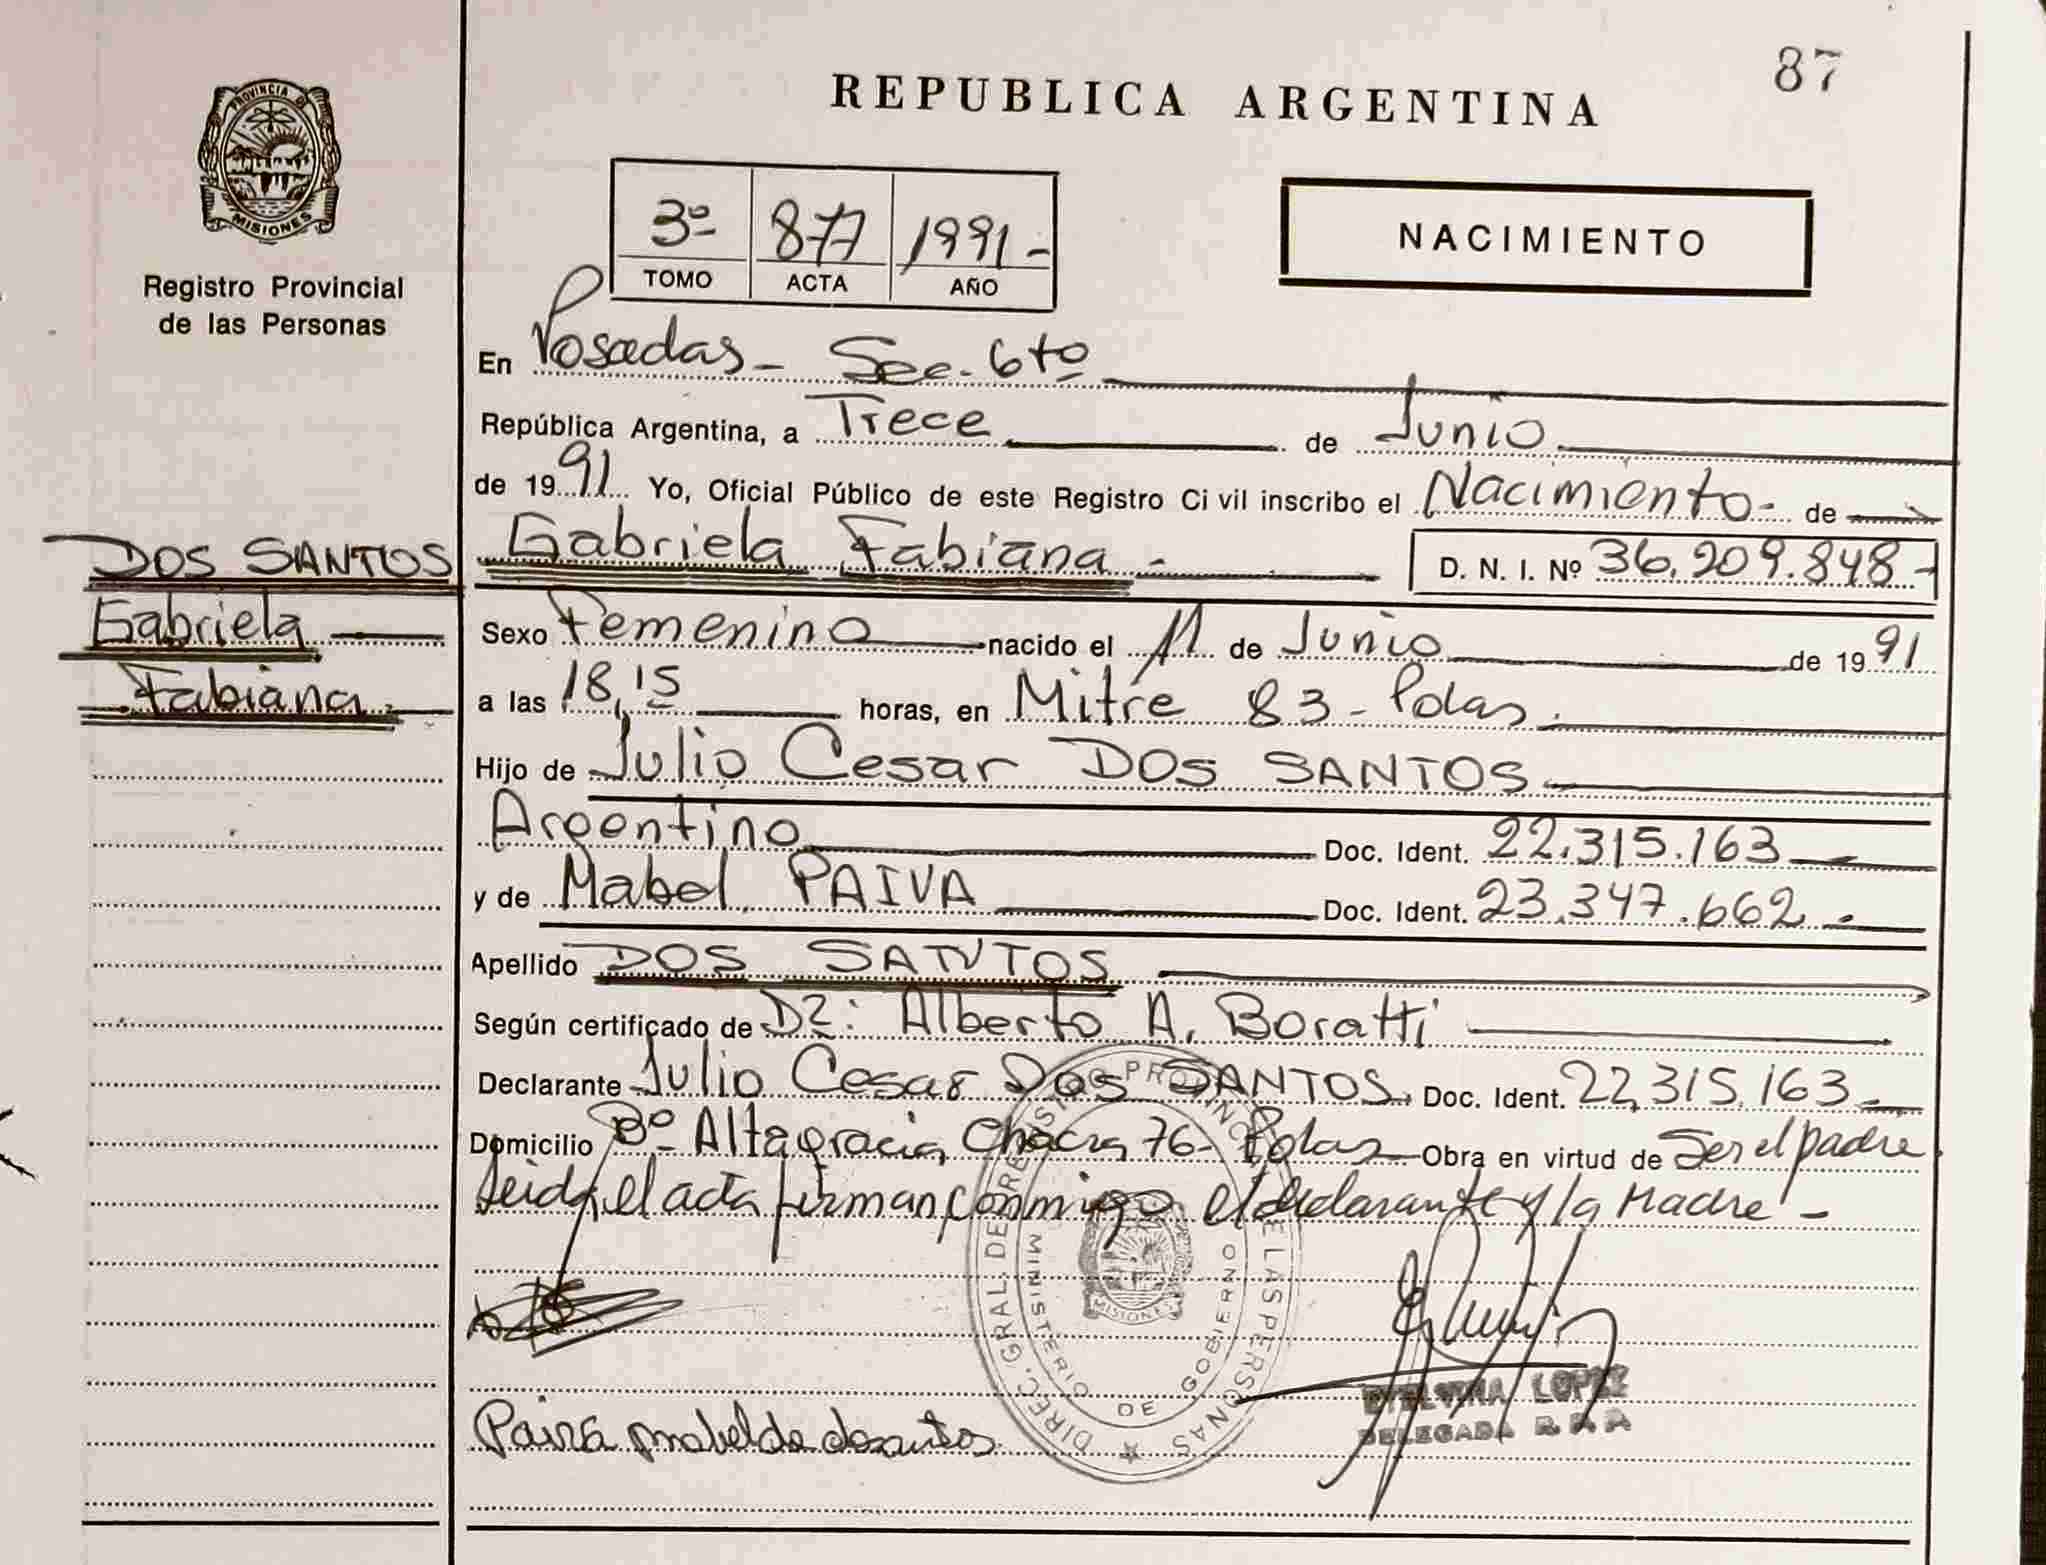 87
REPUBLICA ARGENTINA
PROVINCIA DE
MISIONES
Registro Provincial
de las Personas
3º 877 1991-
TOMO ACTA AÑO
NACIMIENTO
En Posadas - Sec. 6to
República Argentina, a Trece de Junio
de 1991 Yo, Oficial Público de este Registro Civil inscribo el Nacimiento - de
DOS SANTOS
Gabriela
Fabiana
Gabriela Fabiana - D. N. I. Nº 36.209.848-
Sexo Femenino nacido el 11 de Junio de 1991
a las 18,15 horas, en Mitre 83 - Pdas.
Hijo de Julio Cesar DOS SANTOS
Argentino Doc. Ident. 22.315.163
y de Mabel PAIVA Doc. Ident. 23.347.662.-
Apellido DOS SANTOS
Según certificado de Dr: Alberto A. Boratti
Declarante Julio Cesar Dos SANTOS. Doc. Ident. 22,315.163
Domicilio Bº Altagracia Chacra 76- Pdas Obra en virtud de Ser el padre
Leida el acta firman conmigo el declarante y la Madre -
DIREC. GRAL. DE REGISTRO PROVINCIAL DE LAS PERSONAS
MINISTERIO DE GOBIERNO
MISIONES
ETELVINA LOPEZ
DELEGADA
Paiva mabel de dosantos